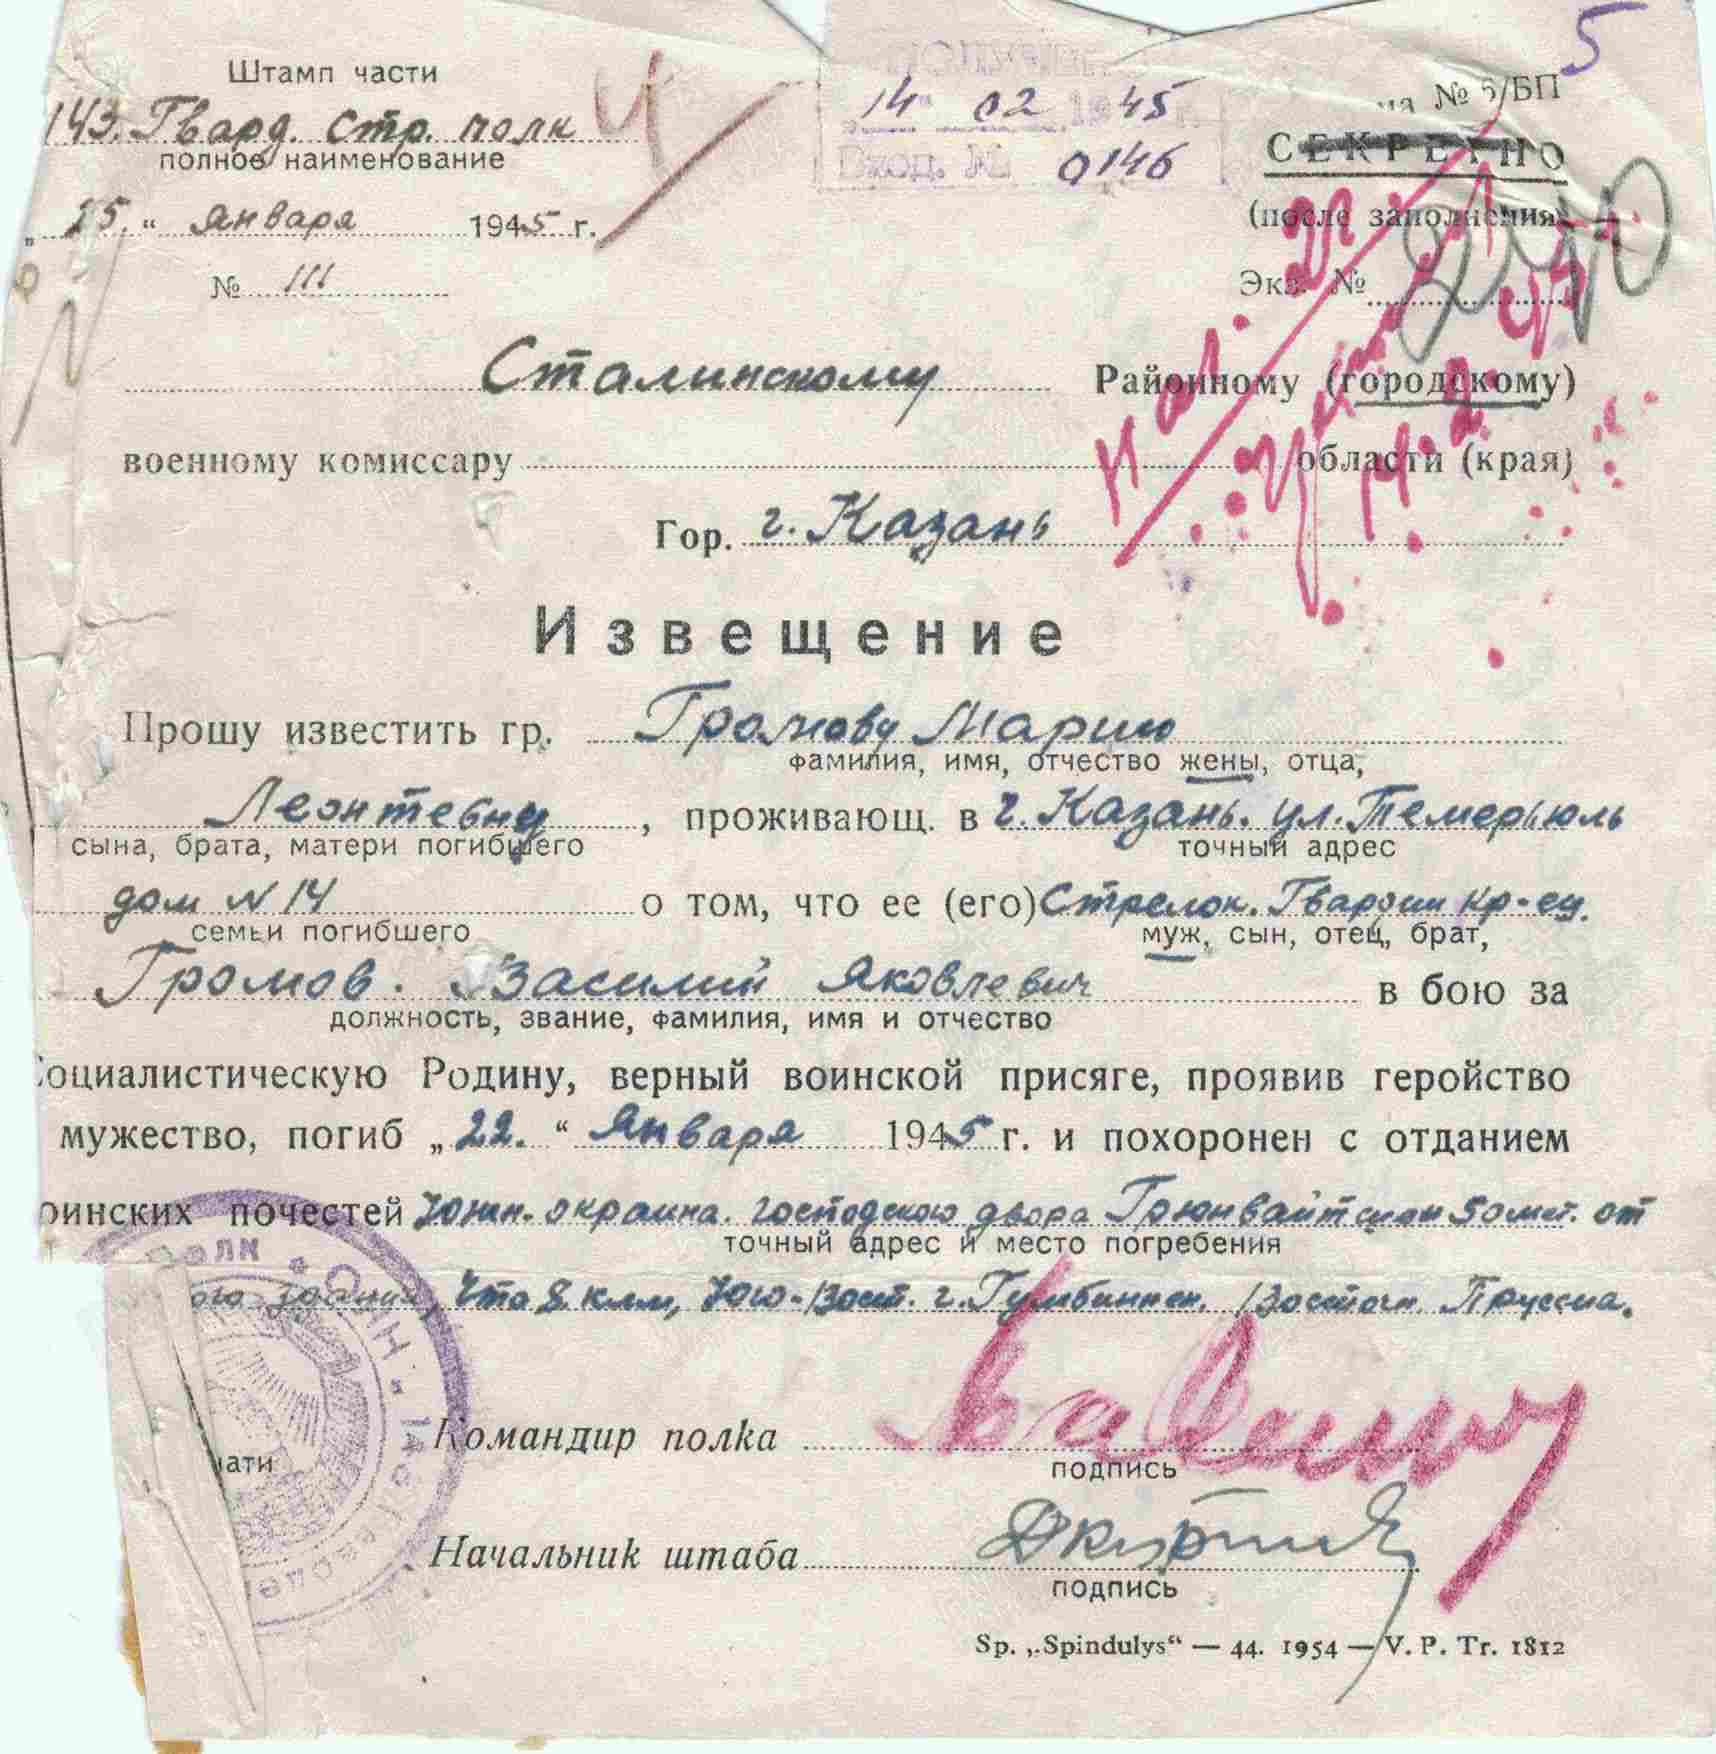 Штамп части
143. Гвард. Стр. полк
полное наименование
„ 25. “ Января 1945 г.
№ 111
14 02 1945
Вход. № 0146
5
№ 6/БП
СЕКРЕТНО
(после заполнения)
Экз. №
Сталинскому Районному (городскому)
военному комиссару области (края)
Гор. г. Казань
Извещение
Прошу известить гр. Громову Марию
фамилия, имя, отчество жены, отца,
Леонтевну, проживающ. в г. Казань. ул. Темерьюль
сына, брата, матери погибшего точный адрес
дом N 14 о том, что ее (его) Стрелок. Гвардии кр-ец.
семьи погибшего муж, сын, отец, брат,
Громов. Василий Яковлевич в бою за
должность, звание, фамилия, имя и отчество
Социалистическую Родину, верный воинской присяге, проявив геройство
мужество, погиб „22.“ Января 1945 г. и похоронен с отданием
воинских почестей Южн. окраина. господского двора Грюнвайтшен 50 мет. от
точный адрес и место погребения
здания, Что 8 клм, Юго-Вост. г. Гумбиннен. Восточн. Пруссиа.
Командир полка
подпись
Начальник штаба
подпись
Sp. „Spindulys“ — 44. 1954 — V. P. Tr. 1812